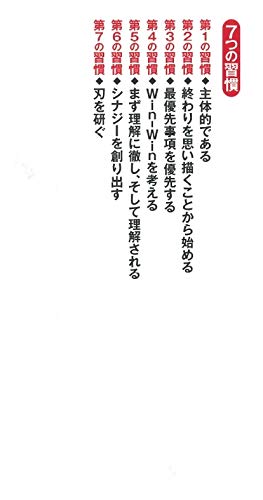 7つの習慣
第1の習慣◆主体的である
第2の習慣◆終わりを思い描くことから始める
第3の習慣◆最優先事項を優先する
第4の習慣◆Win-Winを考える
第5の習慣◆まず理解に徹し、そして理解される
第6の習慣◆シナジーを創り出す
第7の習慣◆刃を研ぐ